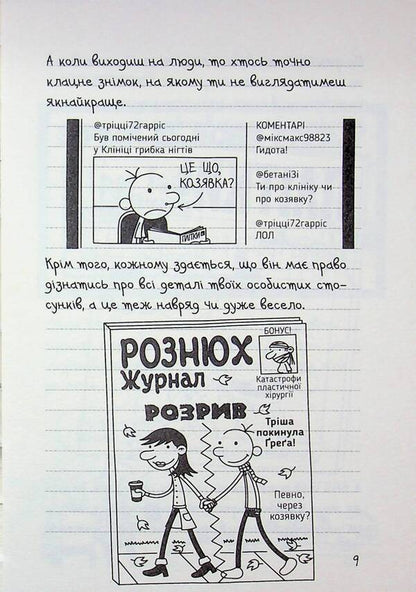 А коли виходиш на люди, то хтось точно
клацне знімок, на якому ти не виглядатимеш
якнайкраще.
@тріцці72гарріс
Був помічений сьогодні
у Клініці грибка нігтів
ЦЕ ЩО,
КОЗЯВКА?
ПИЛКИ
КОМЕНТАРІ
@міксмакс98823
Гидота!
@бетані3і
Ти про клініку чи
про козявку?
@тріцці72гарріс
ЛОЛ
Крім того, кожному здається, що він має право
дізнатись про всі деталі твоїх особистих сто-
сунків, а це теж навряд чи дуже весело.
РОЗНЮХ
Журнал
БОНУС!
Катастрофи
пластичної
хірургії
РОЗРИВ
Тріша
покинула
Ґреґа!
Певно,
через
козявку?
9